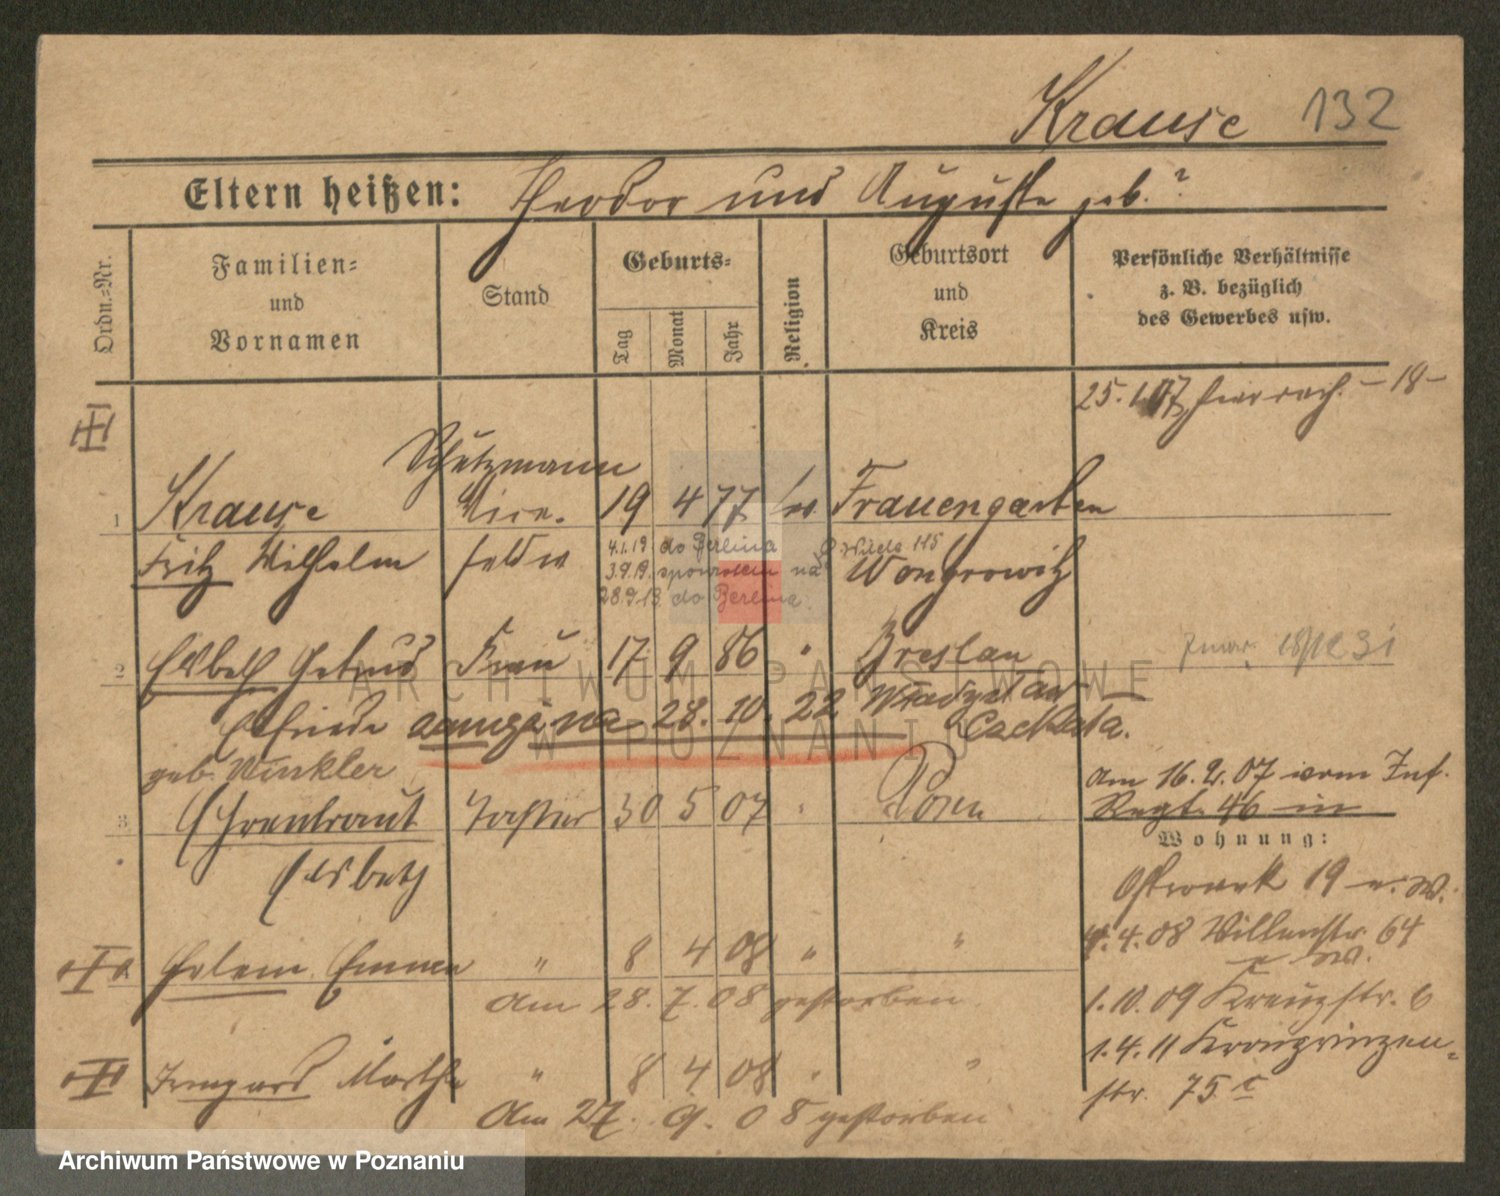 Krause 132
Eltern heißen: Theodor und Auguste geb. ?
Ordn.-Nr.
Familien-
und
Vornamen
Stand
Geburts-
Tag
Monat
Jahr
Religion
Geburtsort
und
Kreis
Persönliche Verhältnisse
z. B. bezüglich
des Gewerbes usw.
25. 1. 07 - 18 -
Schutzmann
1 Krause Vice- 19 4 77 ev Frauengarten
Fritz Wilhelm feldw Wongrowitz
4.1.19 do Berlina
3.9.19. spowrotem na Wilda 115
28.9.19 do Berlina.
2 Elsbeth Getrud Frau 17 9 86 " Breslau
Elfriede 28. 10. 22 Władysław
Cackata.
geb. Winkler
am 16. 2. 07 vom Inf.
Regt. 46 in
3 Ehrentraut Tochter 30 5 07 " Posen
Elsbeth
Wohnung:
19
4. 4. 08 Villenstr. 64
Helene Emma " 8 4 08 " "
am 28. 7. 08 gestorben
1. 10. 09 Kreuzstr. 6
1. 4. 11 Kronprinzen-
str. 75 c
Irmgard Martha " 8 4 08 " "
am 27. 9. 08 gestorben
ARCHIWUM PAŃSTWOWE
W POZNANIU
Archiwum Państwowe w Poznaniu